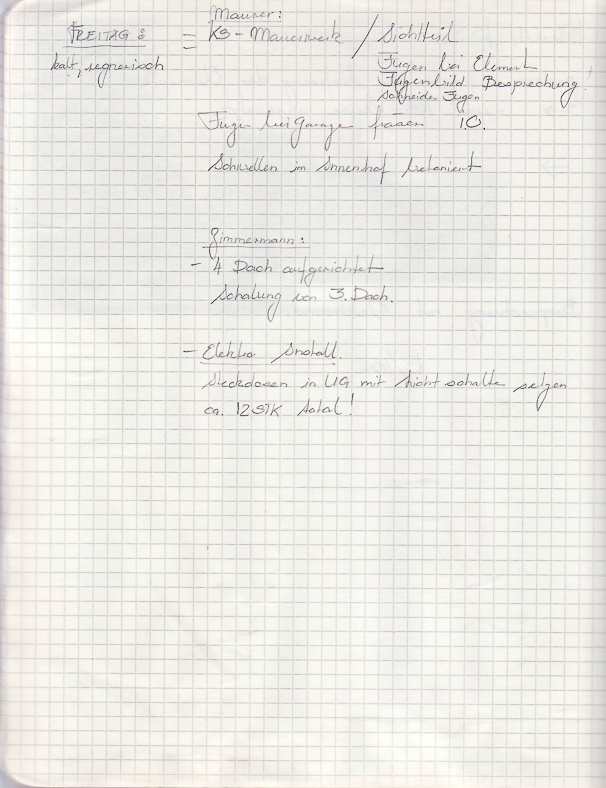 Maurer:
FREITAG: = KS-Mauerwerk / Sichtteil
kalt, regnerisch
Fugen bei Element
Fugenbild Besprechung!
Schneider Fugen
Fugen bei Garage fräsen i.O.
Schwellen im Innenhof betoniert
Zimmermann:
- 4 Dach aufgerichtet
Schalung von 3. Dach.
- Elektro Install.
Steckdosen in UG mit Licht schalter setzen
ca. 12 STK total!